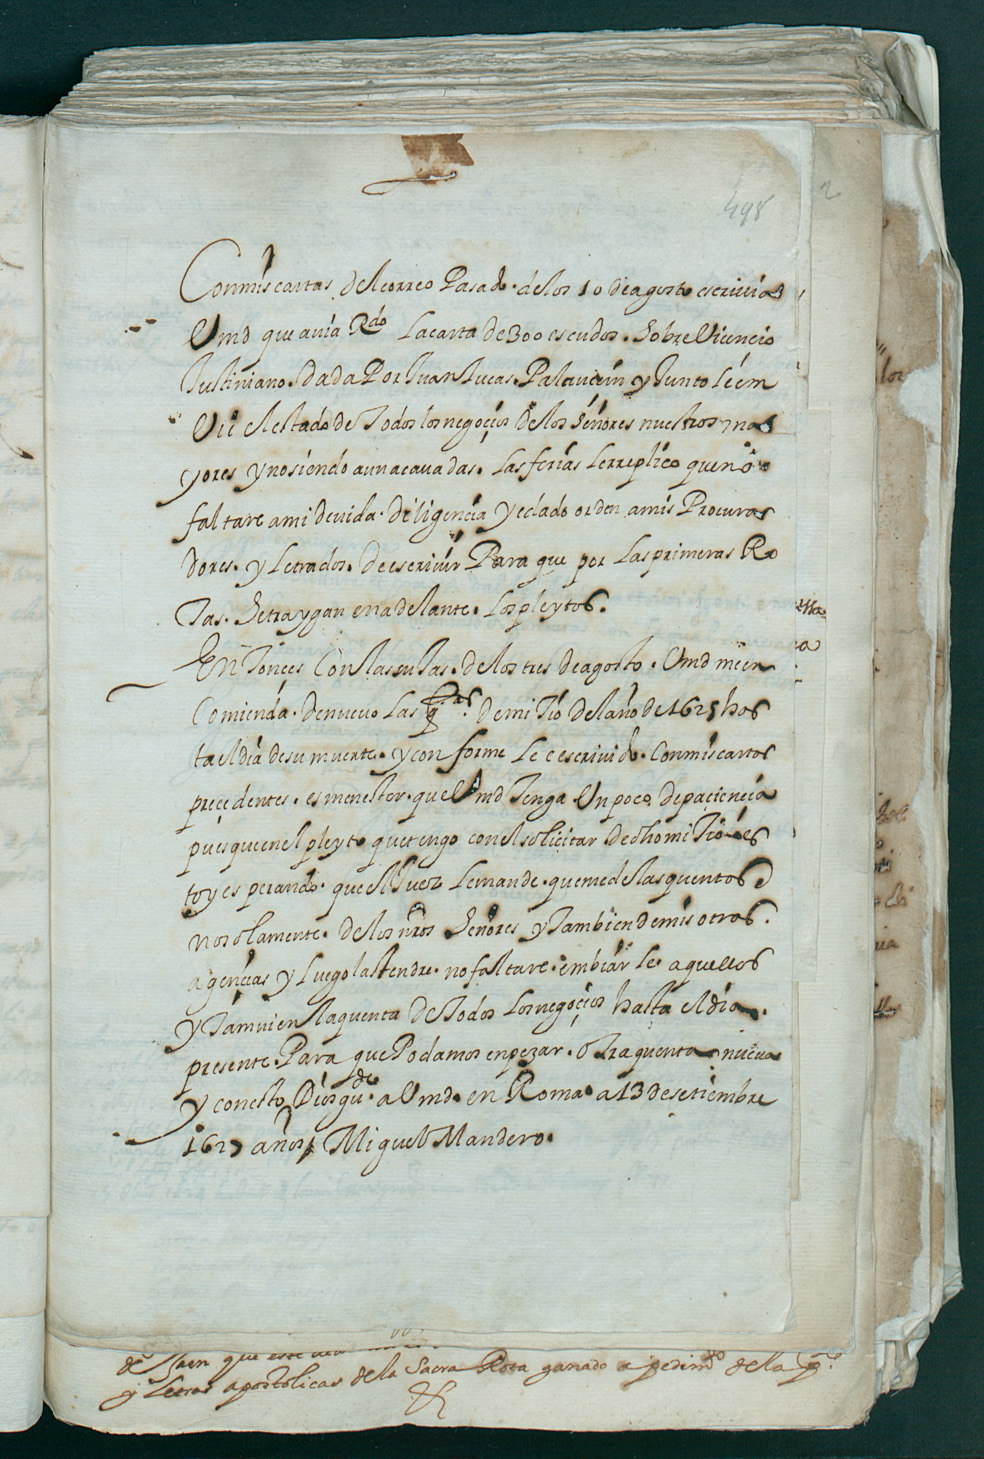 498
2
Con mis cartas del correo Pasado. de los 10 de agosto escriui a
Vmd que auia Rdo La carta de 300 escudos. Sobre Vicencio
Justiniano. dada Por Juan Lucas. Palauicin y Junto le em
Vie el estado de Todos los negocios de los Señores nuestros ma
yores y no siendo aun acauadas. las ferias le rreplico que no
faltare a mi deuida. diligencia y e dado orden a mis Procura
dores. y Letrados. de escriuir Para que por las primeras Ro
Tas. Se traygan en adelante. los pleytos.
En Tonces Con las suyas. de los tres de agosto. Vmd me en
Comienda. de nueuo las qtas. de mi Tio del año de 1625 has
ta el dia de su muerte. y con forme le e escriuido. Con mis cartas
precedentes. es menester. que Vmd Tenga Un poco de paciencia
pues que en el pleyto que tengo con el solicitar de dho mi Tio es
toy esperando. que el Juez le mande. que me de las quentas
no solamente. de los nros Señores y Tambien de mis otras.
agencias y luego las tendre. no faltare. embiar le aquellos
y Tamuien la quenta de Todos los negocios hasta el dia.
presente. Para que Podamos enpezar. otra quenta nueua
y con esto Dios gde. a Vmd. en Roma. a 13 de setiembre
1627 años / Miguel Mandero.
de Jaen que este
y Letras apostolicas de la Sacra Rota ganado a pedimto de la